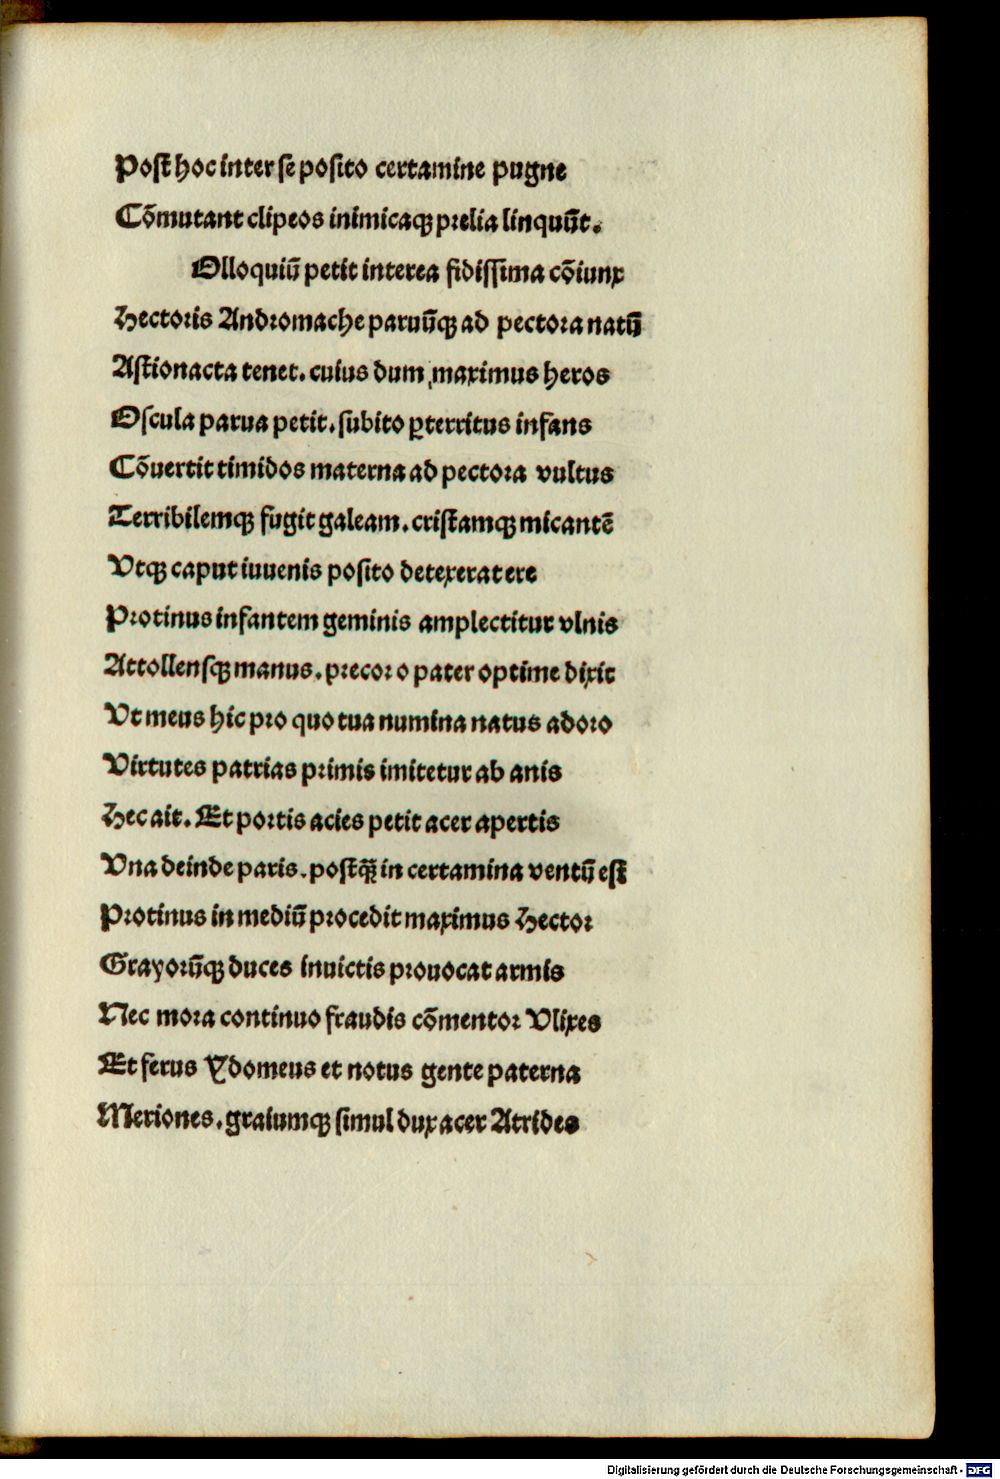 Poſt hoc inter ſe poſito certamine pugne
Cōmutant clipeos inimicaqꝫ prelia linquūt.
Olloquiū petit interea fidiſſima cōiunx
Hectoris Andromache paruūqꝫ ad pectora natū
Aſtionacta tenet. cuius dum maximus heros
Oſcula parua petit. ſubito ꝑterritus infans
Cōuertit timidos materna ad pectora vultus
Terribilemqꝫ fugit galeam. criſtamqꝫ micantē
Vtqꝫ caput iuuenis poſito detexerat ere
Protinus infantem geminis amplectitur vlnis
Attollenſqꝫ manus. precor o pater optime dixit
Vt meus hic pro quo tua numina natus adoro
Virtutes patrias primis imitetur ab anis
Hec ait. Et portis acies petit acer apertis
Vna deinde paris. poſtqꝫ̄ in certamina ventū eſt
Protinus in mediū procedit maximus Hector
Grayorūqꝫ duces inuictis prouocat armis
Nec mora continuo fraudis cōmentor Vlixes
Et ferus Ydomeus et notus gente paterna
Meriones. graiumqꝫ ſimul dux acer Atrides
Digitalisierung gefördert durch die Deutsche Forschungsgemeinschaft - DFG